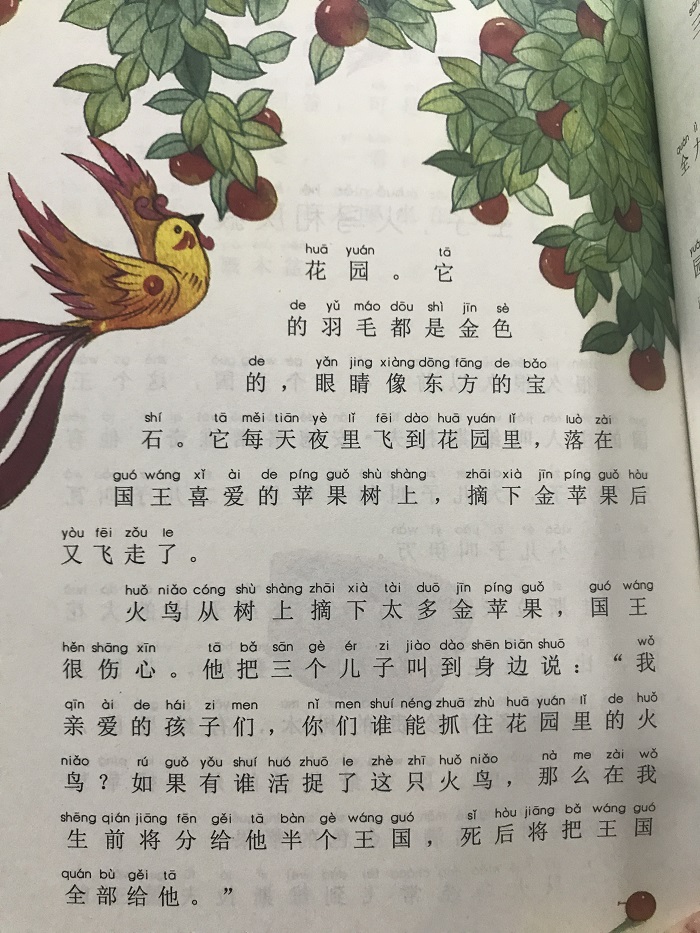 huā yuán tā
花园。它
de yǔ máo dōu shì jīn sè
的羽毛都是金色
de yǎn jing xiàng dōng fāng de bǎo
的，眼睛像东方的宝
shí tā měi tiān yè lǐ fēi dào huā yuán lǐ luò zài
石。它每天夜里飞到花园里，落在
guó wáng xǐ ài de píng guǒ shù shàng zhāi xià jīn píng guǒ hòu
国王喜爱的苹果树上，摘下金苹果后
yòu fēi zǒu le
又飞走了。
huǒ niǎo cóng shù shàng zhāi xià tài duō jīn píng guǒ guó wáng
火鸟从树上摘下太多金苹果，国王
hěn shāng xīn tā bǎ sān gè ér zi jiào dào shēn biān shuō wǒ
很伤心。他把三个儿子叫到身边说：“我
qīn ài de hái zi men nǐ men shuí néng zhuā zhù huā yuán lǐ de huǒ
亲爱的孩子们，你们谁能抓住花园里的火
niǎo rú guǒ yǒu shuí huó zhuō le zhè zhī huǒ niǎo nà me zài wǒ
鸟？如果有谁活捉了这只火鸟，那么在我
shēng qián jiāng fēn gěi tā bàn gè wáng guó sǐ hòu jiāng bǎ wáng guó
生前将分给他半个王国，死后将把王国
quán bù gěi tā
全部给他。”